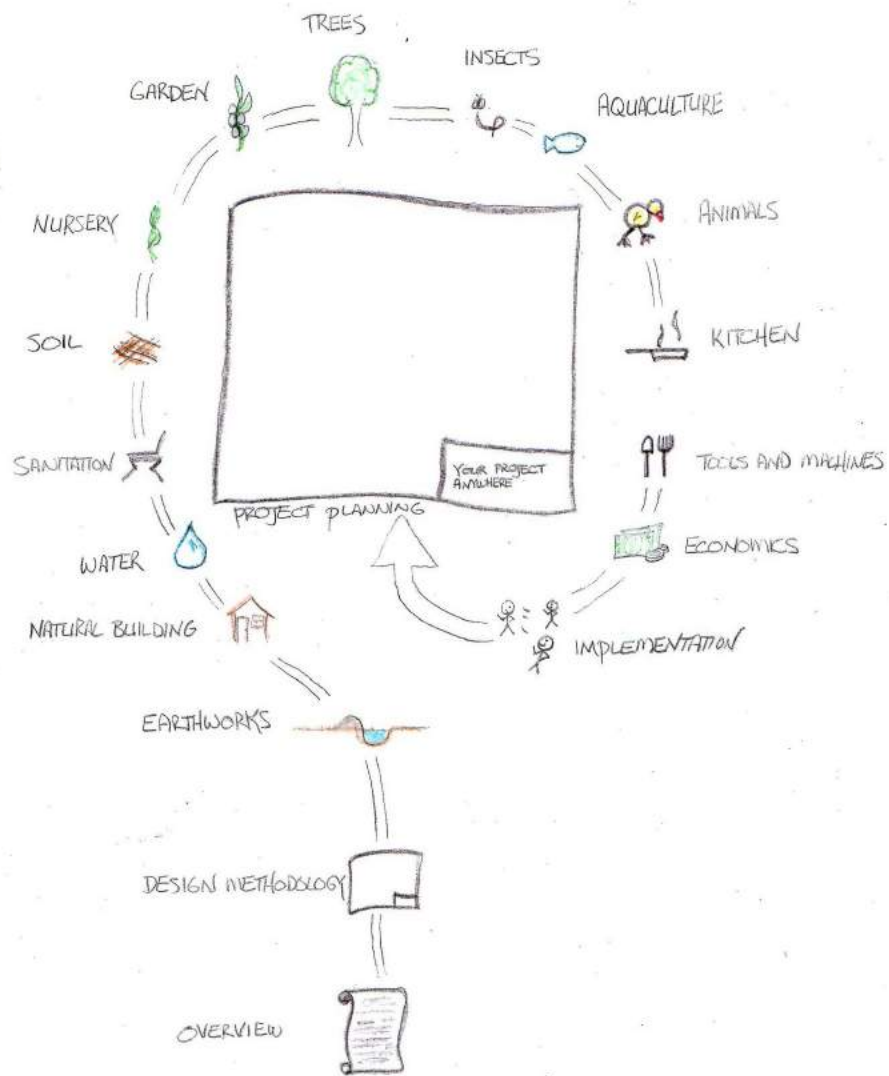 TREES
INSECTS
GARDEN
AQUACULTURE
NURSERY
ANIMALS
SOIL
KITCHEN
SANITATION
TOOLS AND MACHINES
YOUR PROJECT
ANYWHERE
PROJECT PLANNING
ECONOMICS
WATER
NATURAL BUILDING
IMPLEMENTATION
EARTHWORKS
DESIGN METHODOLOGY
OVERVIEW